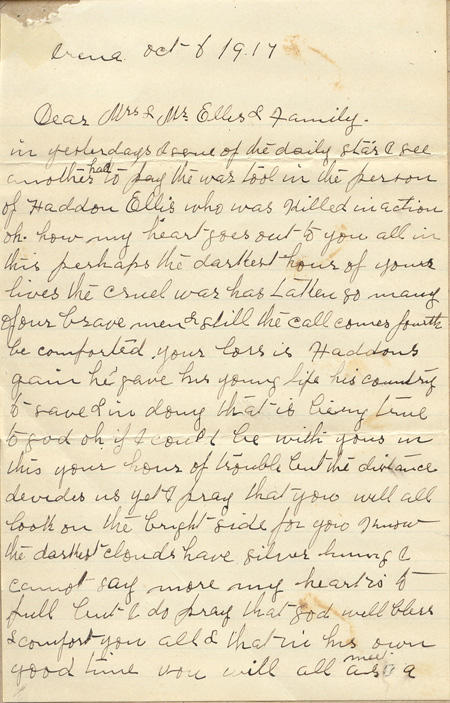 Irena Oct 8 1917
Dear Mrs & Mr Ellis & Family.
in yesterdays issue of the daily star I see
another had to pay the war tool in the person
of Haddon Ellis who was Killed in action
oh. how my heart goes out to you all in
this perhaps the darkest hour of your
lives the cruel war has taken so many
of our brave men & still the call comes fourth
be comforted your loss is Haddons
gain he gave his young life his country
to save & in doing that is being true
to god oh if I could be with yous in
this your hour of trouble but the distance
devides us yet I pray that you will all
look on the bright side for you know
the darkest clouds have silver lining I
cannot say more my heart is to
full but I do pray that God will bless
& comfort you all & that in his own
good time you will all meet a